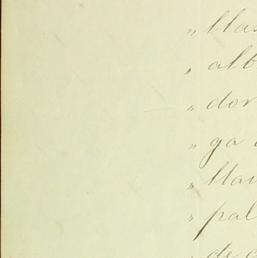 " blas
" alb
" dor
" ga
" llan
" pal
de